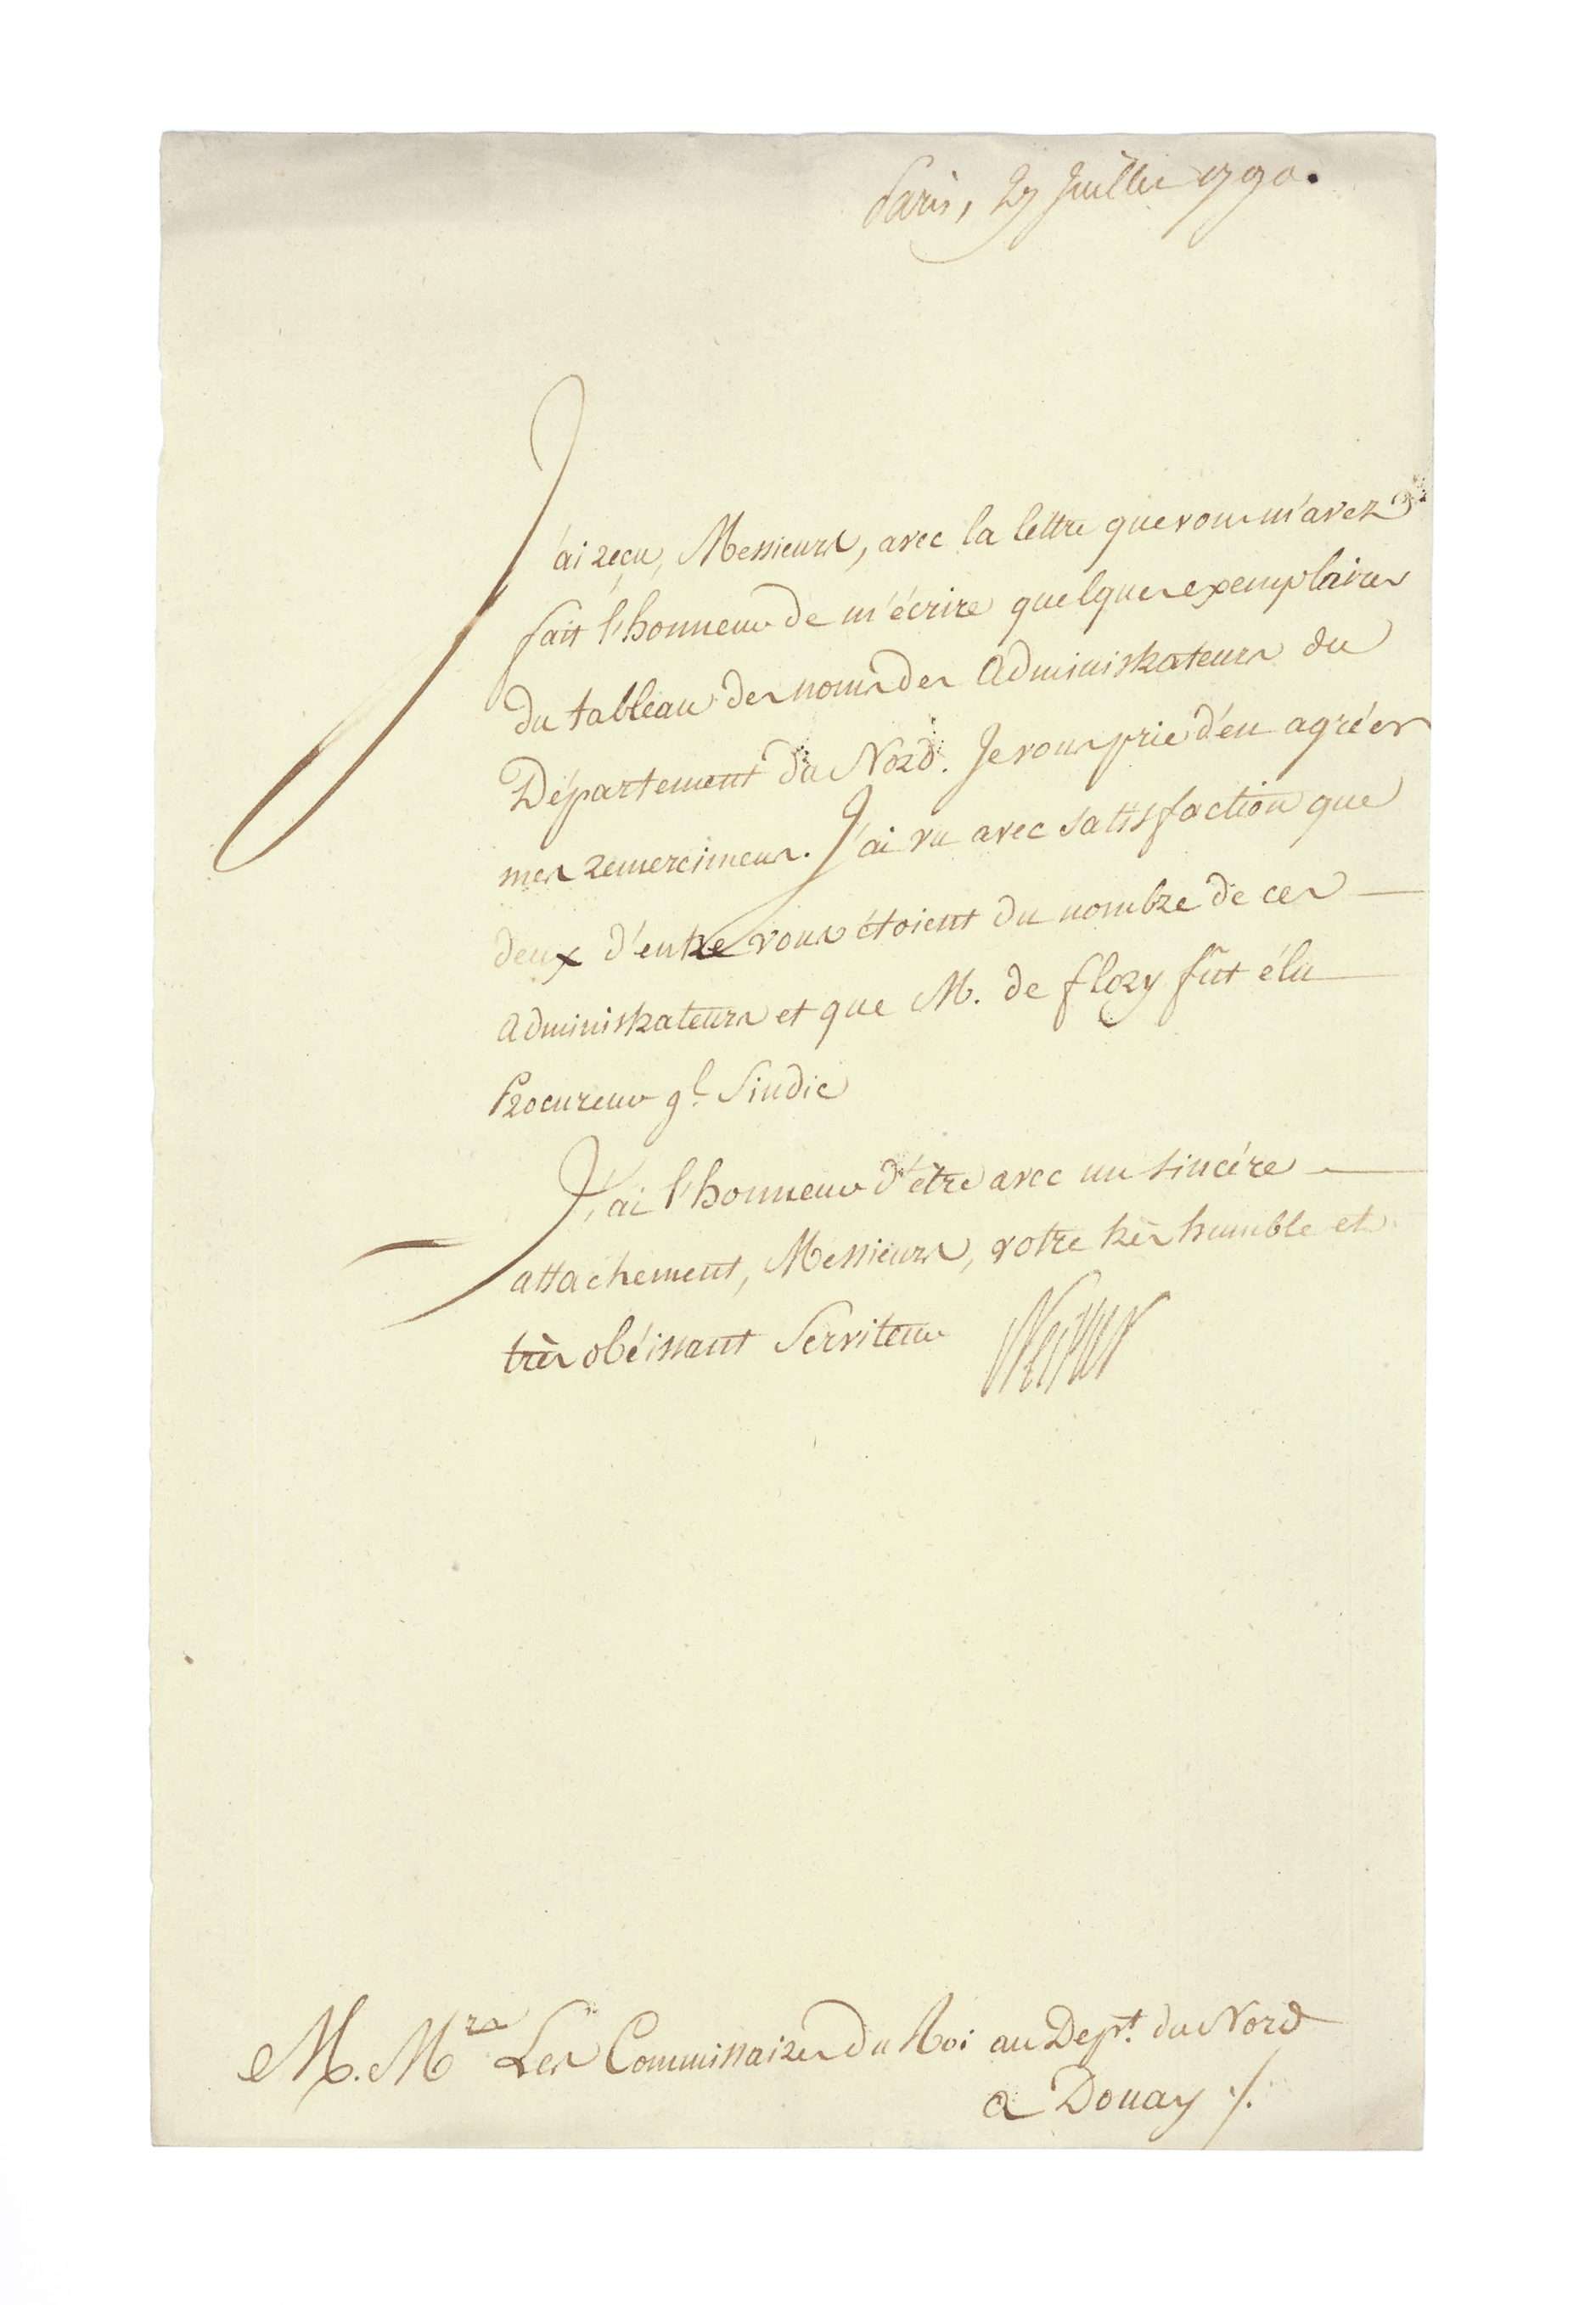 Paris, 29 Juillet 1790.
J'ai reçu, Messieurs, avec la lettre que vous m'avez
fait l'honneur de m'écrire quelques exemplaires
du tableau des noms des Administrateurs du
Département du Nord. Je vous prie d'en agréer
mes remercimens. J'ai vu avec satisfaction que
deux d'entre vous étoient du nombre de ces
Administrateurs et que M. de flory fût élu
Procureur gl. Sindic
J'ai l'honneur d'être avec un sincére
attachement, Messieurs, votre très humble et
très obéissant Serviteur Necker
M. Mrs Les Commissaires du Roi au Dept. du Nord
a Douay ./.